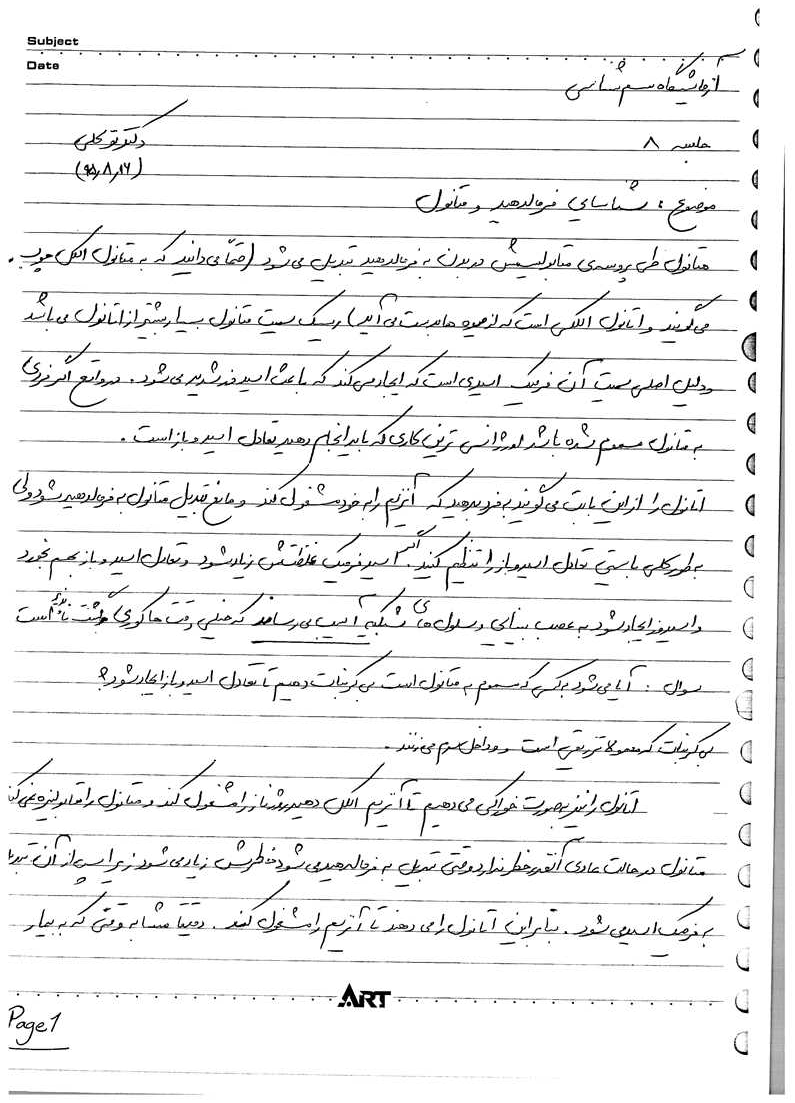 Subject
Date
آزمایشگاه سم شناسی
جلسه ۸ دکتر توکلی
(۹۵٫۸٫۱۶)
موضوع : شناسایی فرمالدهید و متانول
متانول طی پروسه‌ی متابولیسمش در بدن به فرمالدهید تبدیل می شود (حتماً می دانید که به متانول الکل چوب
می گویند و اتانول الکلی است که از میوه ها بدست می آید) ریسک سمیت متانول بسیار بیشتر از اتانول می باشد
و دلیل اصلی سمیت آن فرمیک اسیدی است که ایجاد می کند که باعث اسیدوز شدید می شود . در واقع اگر فردی
به متانول مسموم شده باشد اورژانسی ترین کاری که باید انجام دهید تعادل اسید و باز است .
اتانول را از این بابت می گویند به فرد بدهید که آنزیم را به خود مشغول کند و مانع تبدیل متانول به فرمالدهید شود ولی
به طور کلی بایستی تعادل اسید و باز را تنظیم کنید . اگر اسید فرمیک غلظتش زیاد شود و تعادل اسید و باز بهم بخورد
و اسیدوز ایجاد شود به عصب بینایی و سلول های شبکیه آسیب می رساند که خیلی وقت ها کوری برگشت ناپذیر است
سوال : آیا می شود به کسی که مسموم به متانول است بی کربنات دهیم تا تعادل اسید و باز ایجاد شود؟
بی کربنات که معمولا تزریقی است و داخل سرم می زنند .
اتانول را نیز به صورت خوراکی می دهیم تا آنزیم الکل دهیدروژناز را مشغول کند و متانول را متابولیزه نمی کند
متانول در حالت عادی آنقدر خطر ندارد وقتی تبدیل به فرمالدهید می شود خطرش زیاد می شود زیرا پس از آن تبدیل
به فرمیک اسید می شود . بنابراین اتانول را می دهند تا آنزیم را مشغول کند . دقیقا مشابه وقتی که به بیمار
ART
Page 1